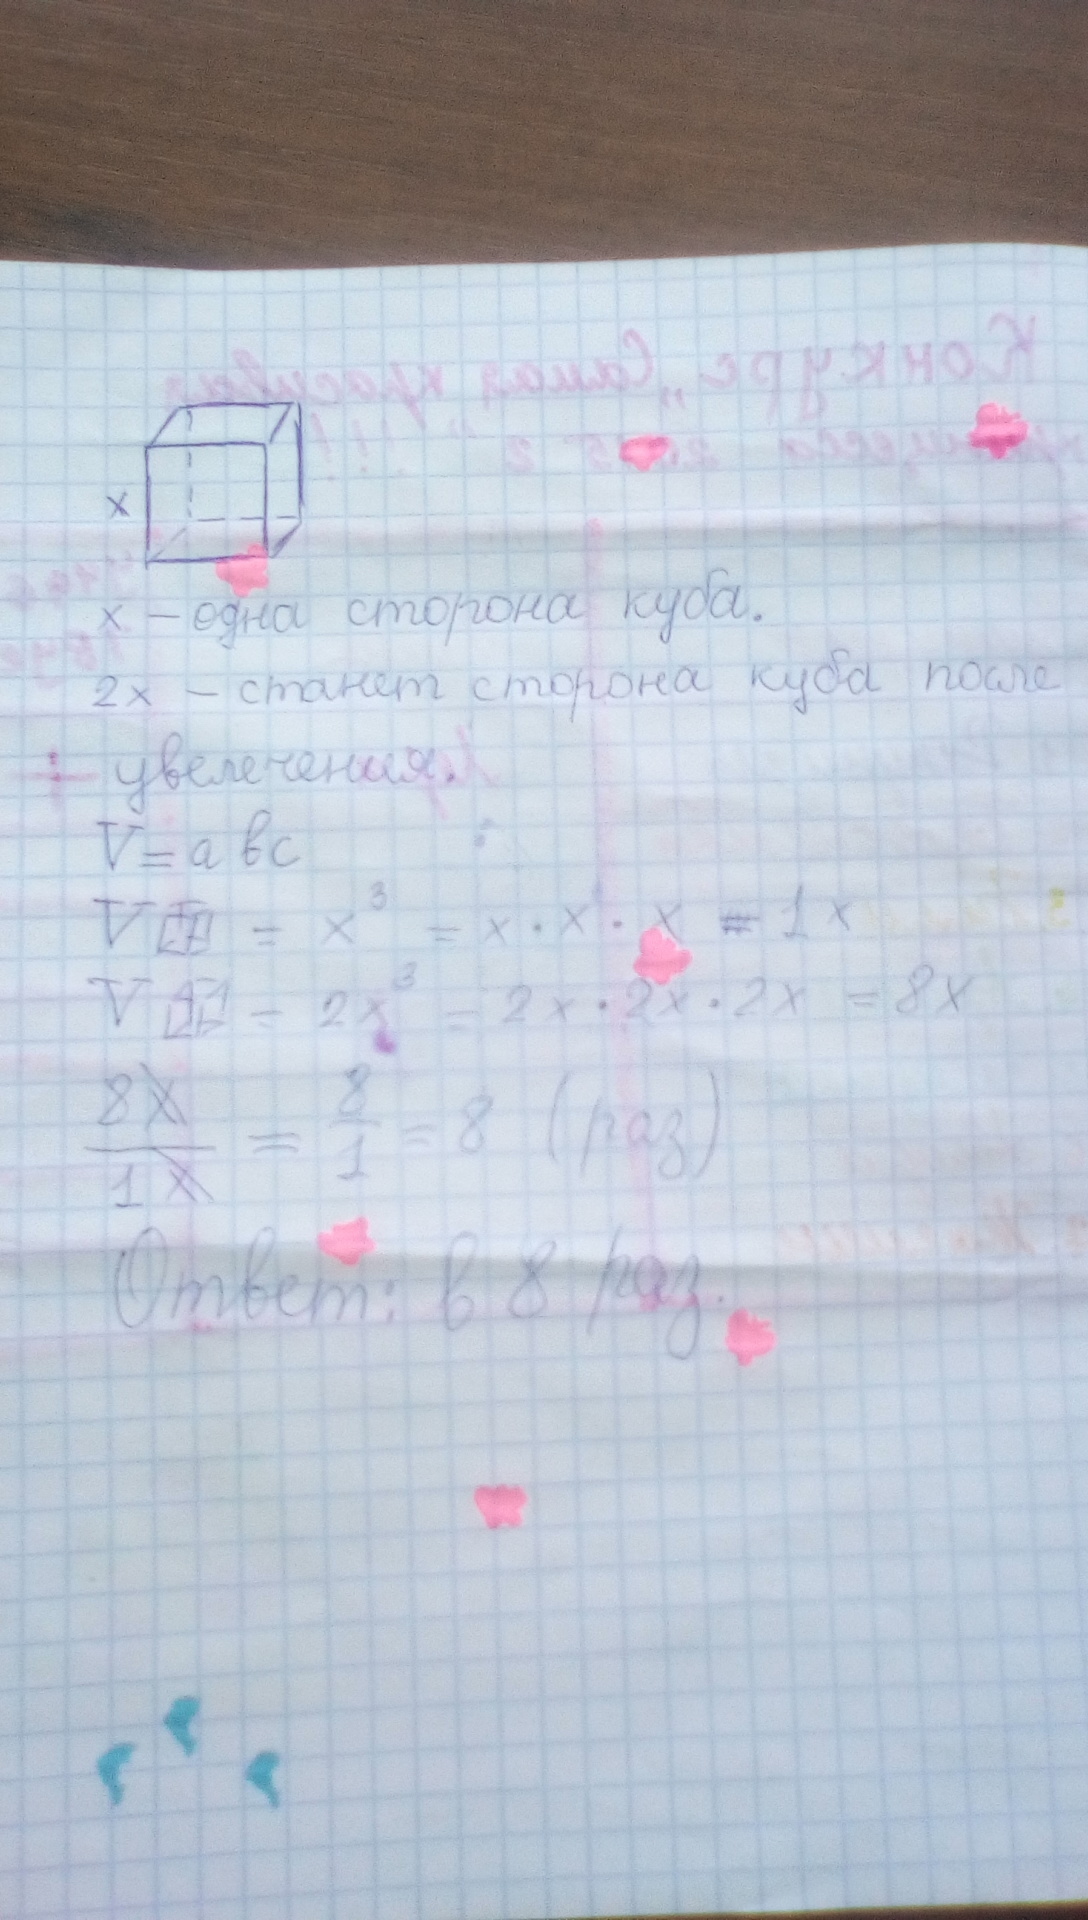 x
x – одна сторона куба.
2x – станет сторона куба после
увелечения.
V = a b c
V = x³ = x · x · x = 1x
V = 2x³ = 2x · 2x · 2x = 8x
8x/1x = 8/1 = 8 (раз)
Ответ: в 8 раз.